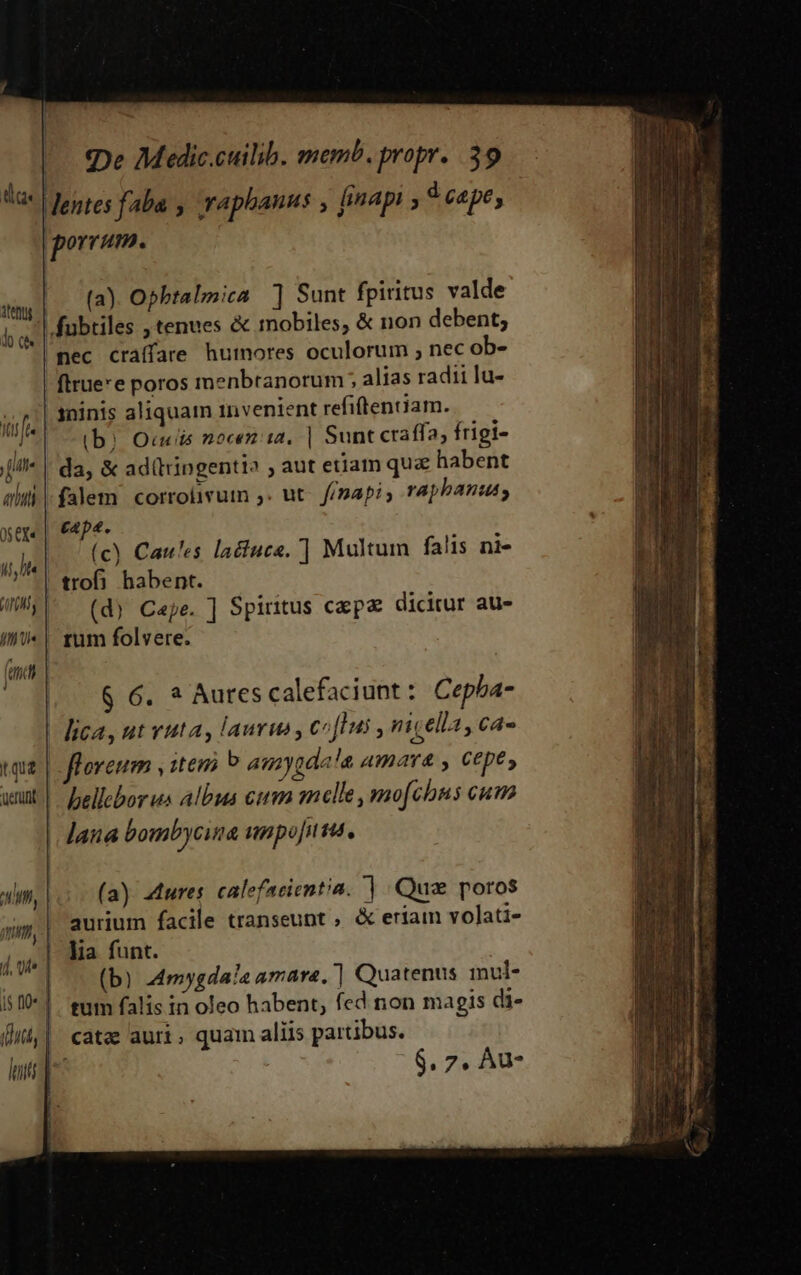 De Medic.cuilib. memb. propr. 39
lentes fabæ, raphanus, ſinapi, d cæpe,
porrum.
(a) Ophtalmica ] Sunt ſpiritus valde
ſubtiles, tenues & mobiles, & non debent,
nec craſſare humores oculorum, nec ob-
ſtruere poros menbranorum, alias radii lu-
minis aliquam invenient reſiſtentiam.
(b) Oculis nocentia. ] Sunt craſſa, frigi-
da, & adſtringentia, aut etiam quæ habent
ſalem corroſivum, ut ſinapi, raphanus,
cæpæ.
(c) Caules lactucæ. ] Multum ſalis ni-
troſi habent.
(d) Cæpe. ] Spiritus cæpæ dicitur au-
rum ſolvere.
§ 6. a Aures calefaciunt: Cepha-
lica, ut ruta, laurus, coſtus, nigella, ca-
ſtoreum, item b amygdala amara, cepe,
helleborus albus cum melle, moſchus cum
lana bombycina impoſitus.
(a) Aures calefacientia. ] Quæ poros
aurium facile transeunt, & etiam volati-
lia ſunt.
(b) Amygdala amara. ] Quatenus mul-
tum ſalis in oleo habent, ſed non magis di-
catæ auri, quam aliis partibus.
§. 7. Au-